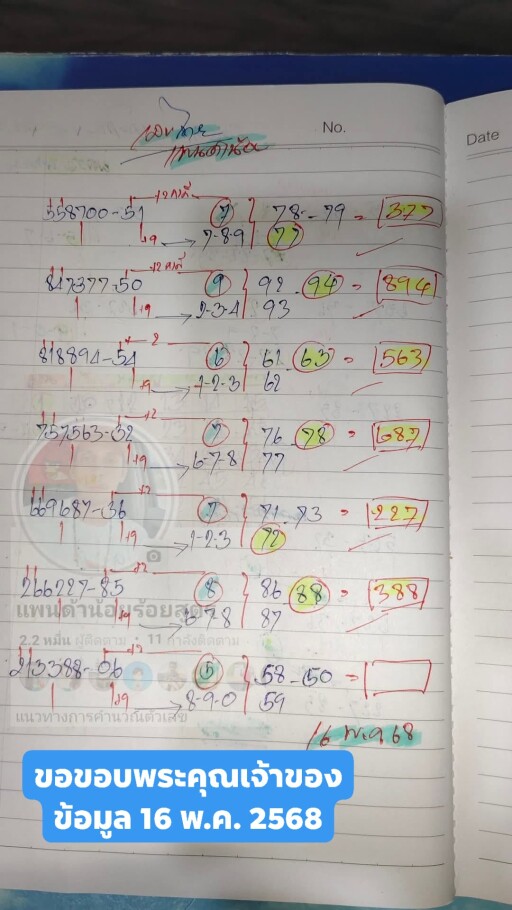 No.
Date
558700-51 7 78-79 = 377
+9 → 7-8-9 77
847377-50 9 92 94 = 894
+9 → 2-3-4 93
818894-54 6 61 63 = 563
+9 → 1-2-3 62
757563-32 7 76 78 = 687
+9 → 6-7-8 77
669687-36 7 71-73 = 227
+9 → 1-2-3 72
266227-85 8 86 88 = 388
+9 → 6-7-8 87
แพนด้าน้อยร้อยสูตร
2.2 หมื่น ผู้ติดตาม · 11 กำลังติดตาม
213388-06 5 58-50 =
+9 → 8-9-0 59
แนวทางการคำนวณตัวเลข
16 พ.ค 68
ขอขอบพระคุณเจ้าของ
ข้อมูล 16 พ.ค. 2568